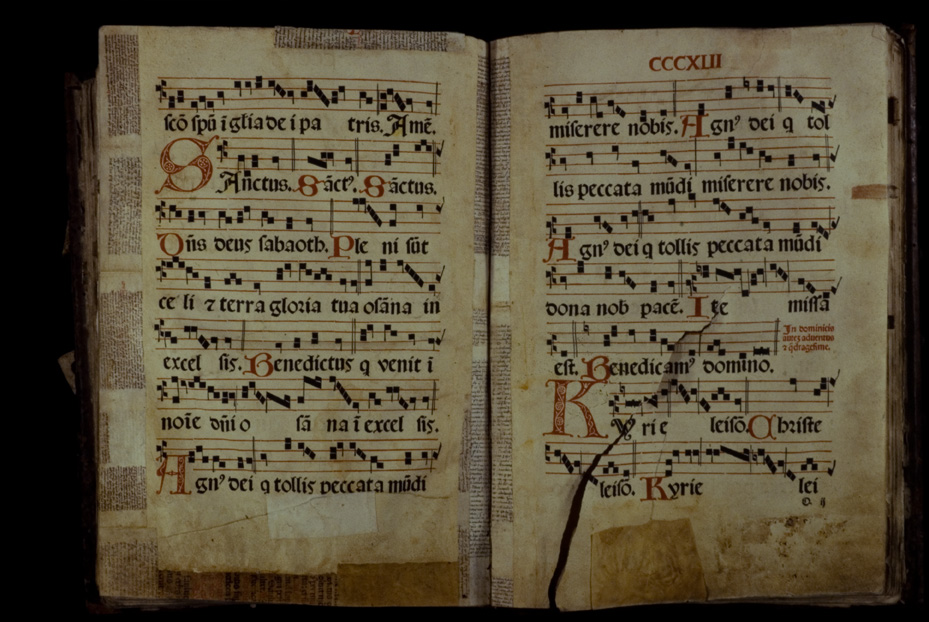 scō spū ī gl̄ia de i pa tris. Amē.
SAnctus. Sāctꝰ. Sāctus.
Dn̄s deus sabaoth. Ple ni sūt
ce li ⁊ terra gloria tua osāna in
excel sis. Benedictus q venit ī
noīe dn̄i o sā na ī excel sis.
Agnꝰ dei q tollis peccata mūdi
CCCXLII
miserere nobis. Agnꝰ dei q tol
lis peccata mūdi miserere nobis.
Agnꝰ dei q tollis peccata mūdi
dona nob pacē. Ite missa
In dominicis
⁊ q̄dragesime.
est. Benedicamꝰ domino.
Kyrie leisō. Christe
leisō. Kyrie lei